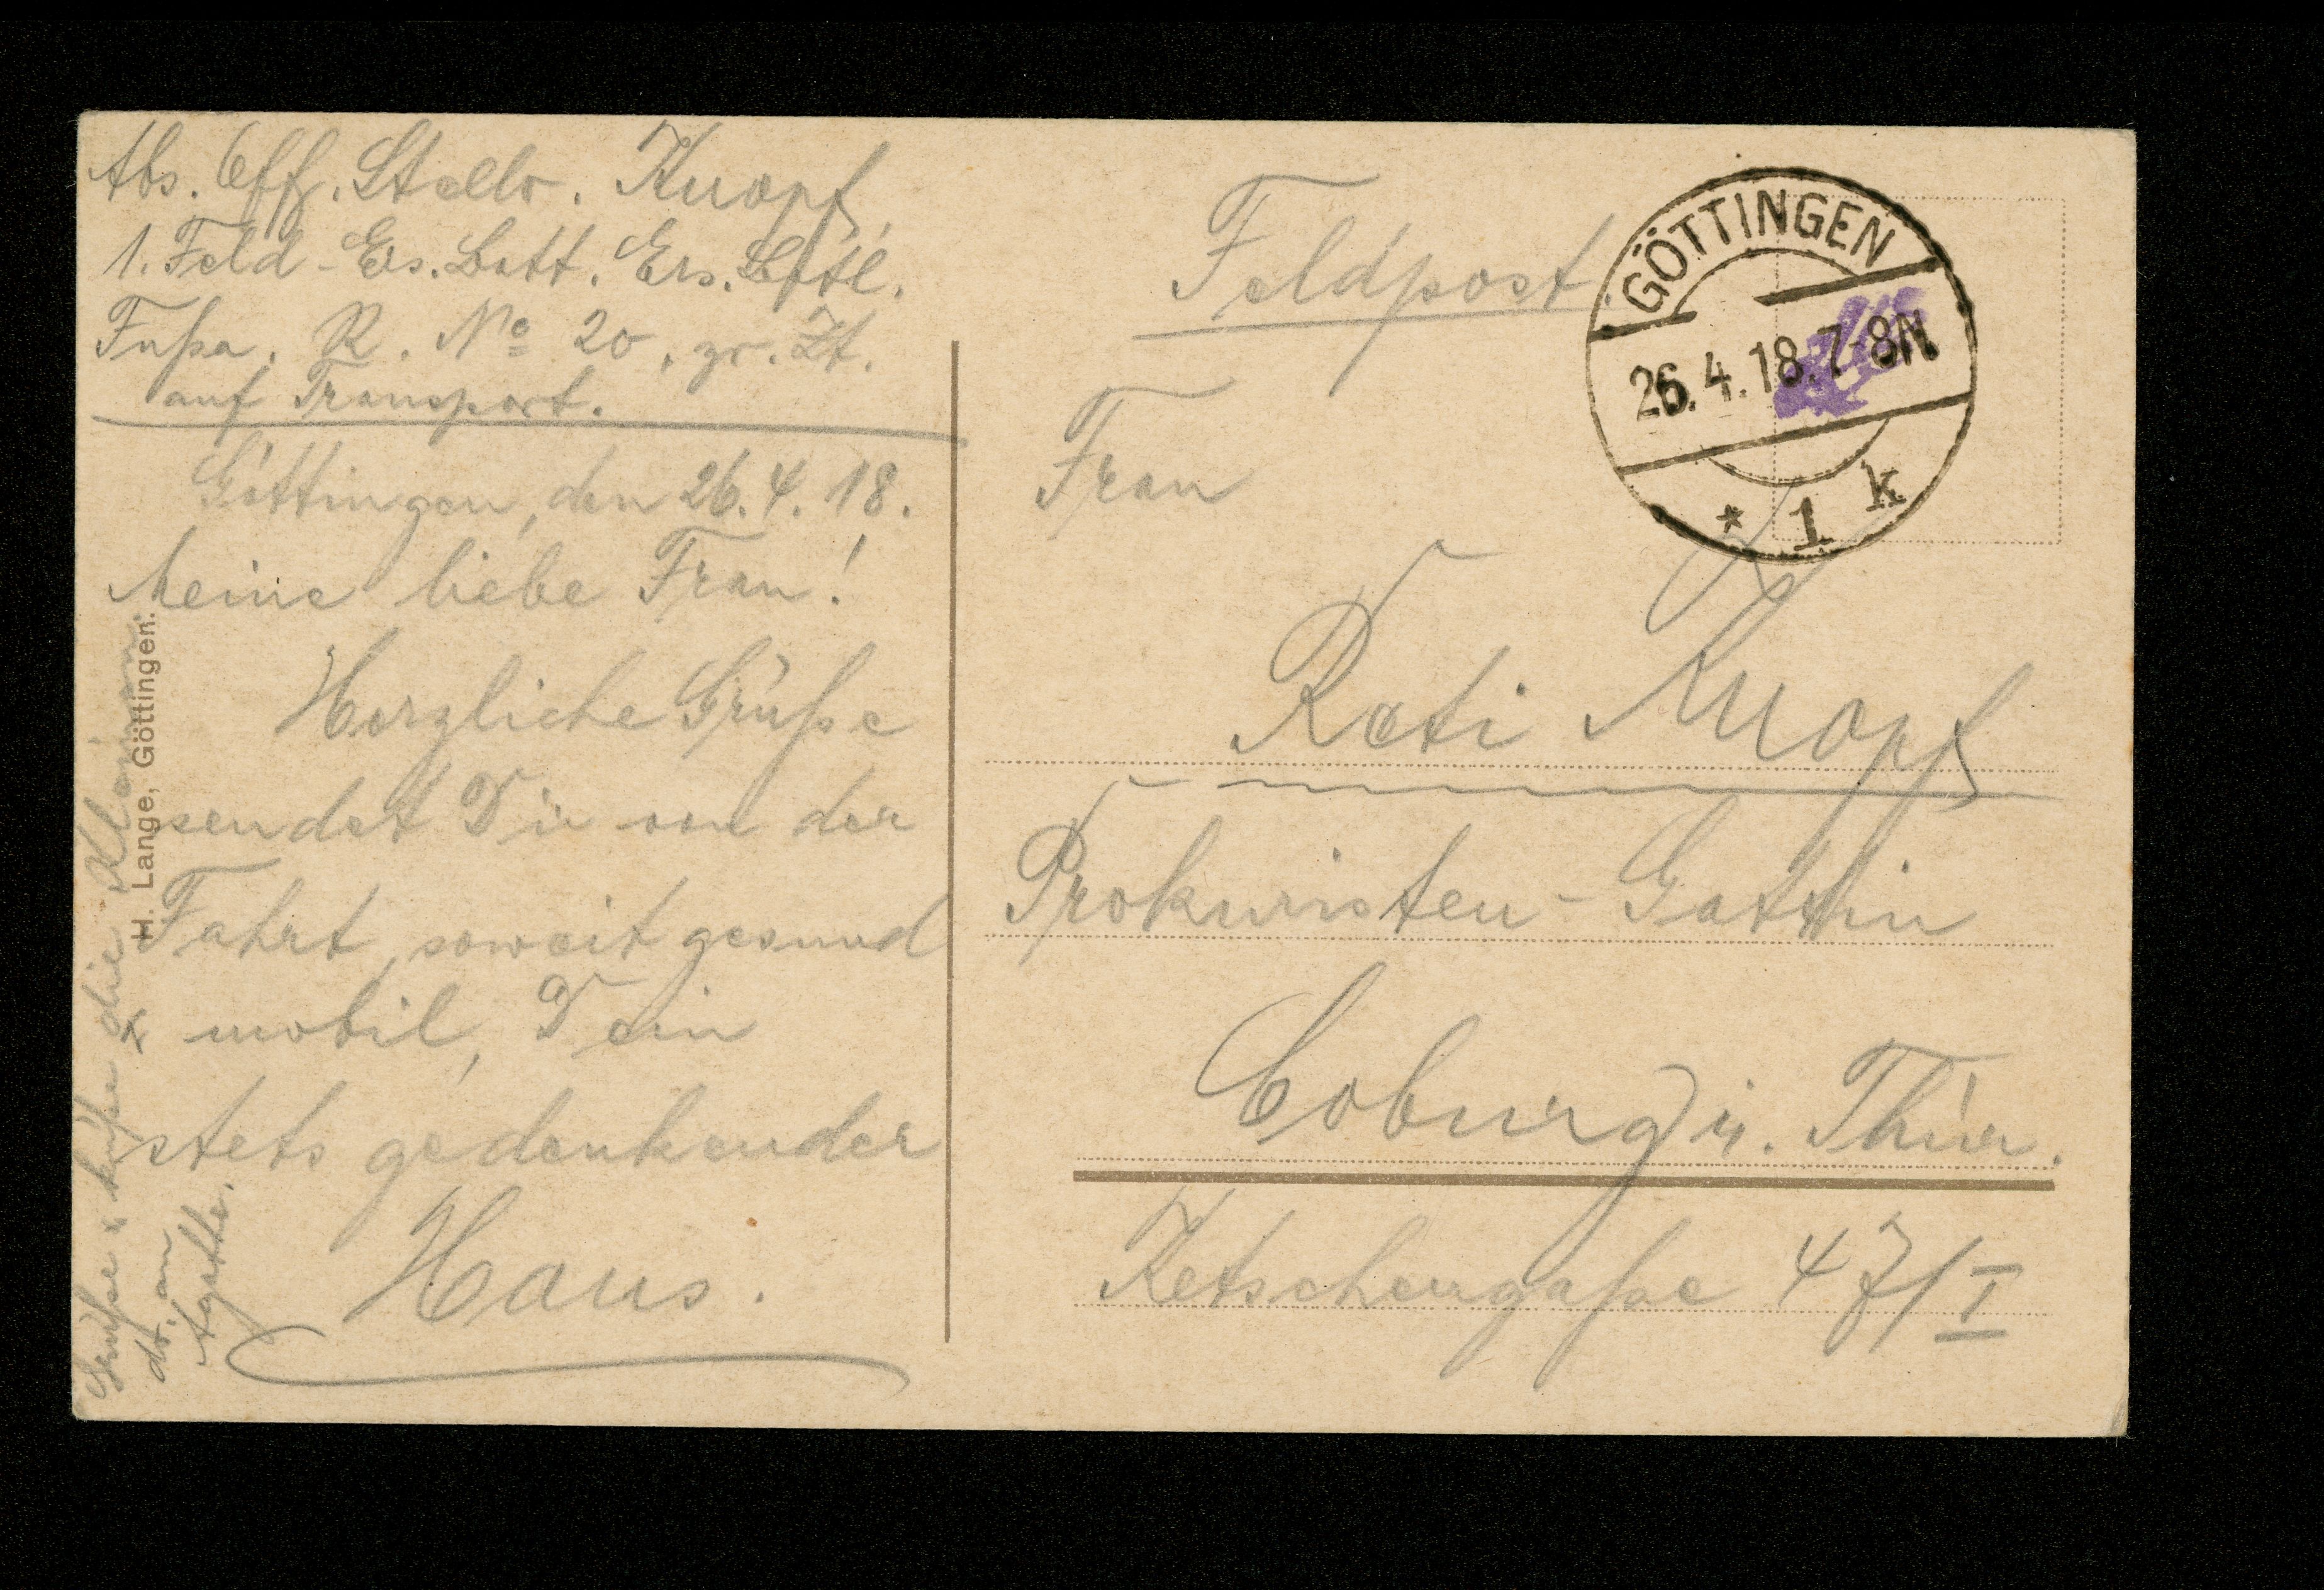 Abs. Off. Stellv. Knopf,
1. Feld-Ers. Batt. Ers. Batl.
Fußa. R. No 20, zr. Zt.
auf Transport.
Göttingen, den 26.4.18.
Meine liebe Frau!
Herzliche Grüße
sendet Dir von der
Fahrt, soweit gesund
& mobil, Dein
stets gedenkender
Hans.
Grüße & küße die Kleinen
do. an
Agathe.
H. Lange, Göttingen.
Feldpost
GÖTTINGEN
26.4.18.7-8N
* 1 k
Frau
Rati Knopf
Prokuristen-Gattin
Coburg i. Thür.
Ketschengaße 47/I